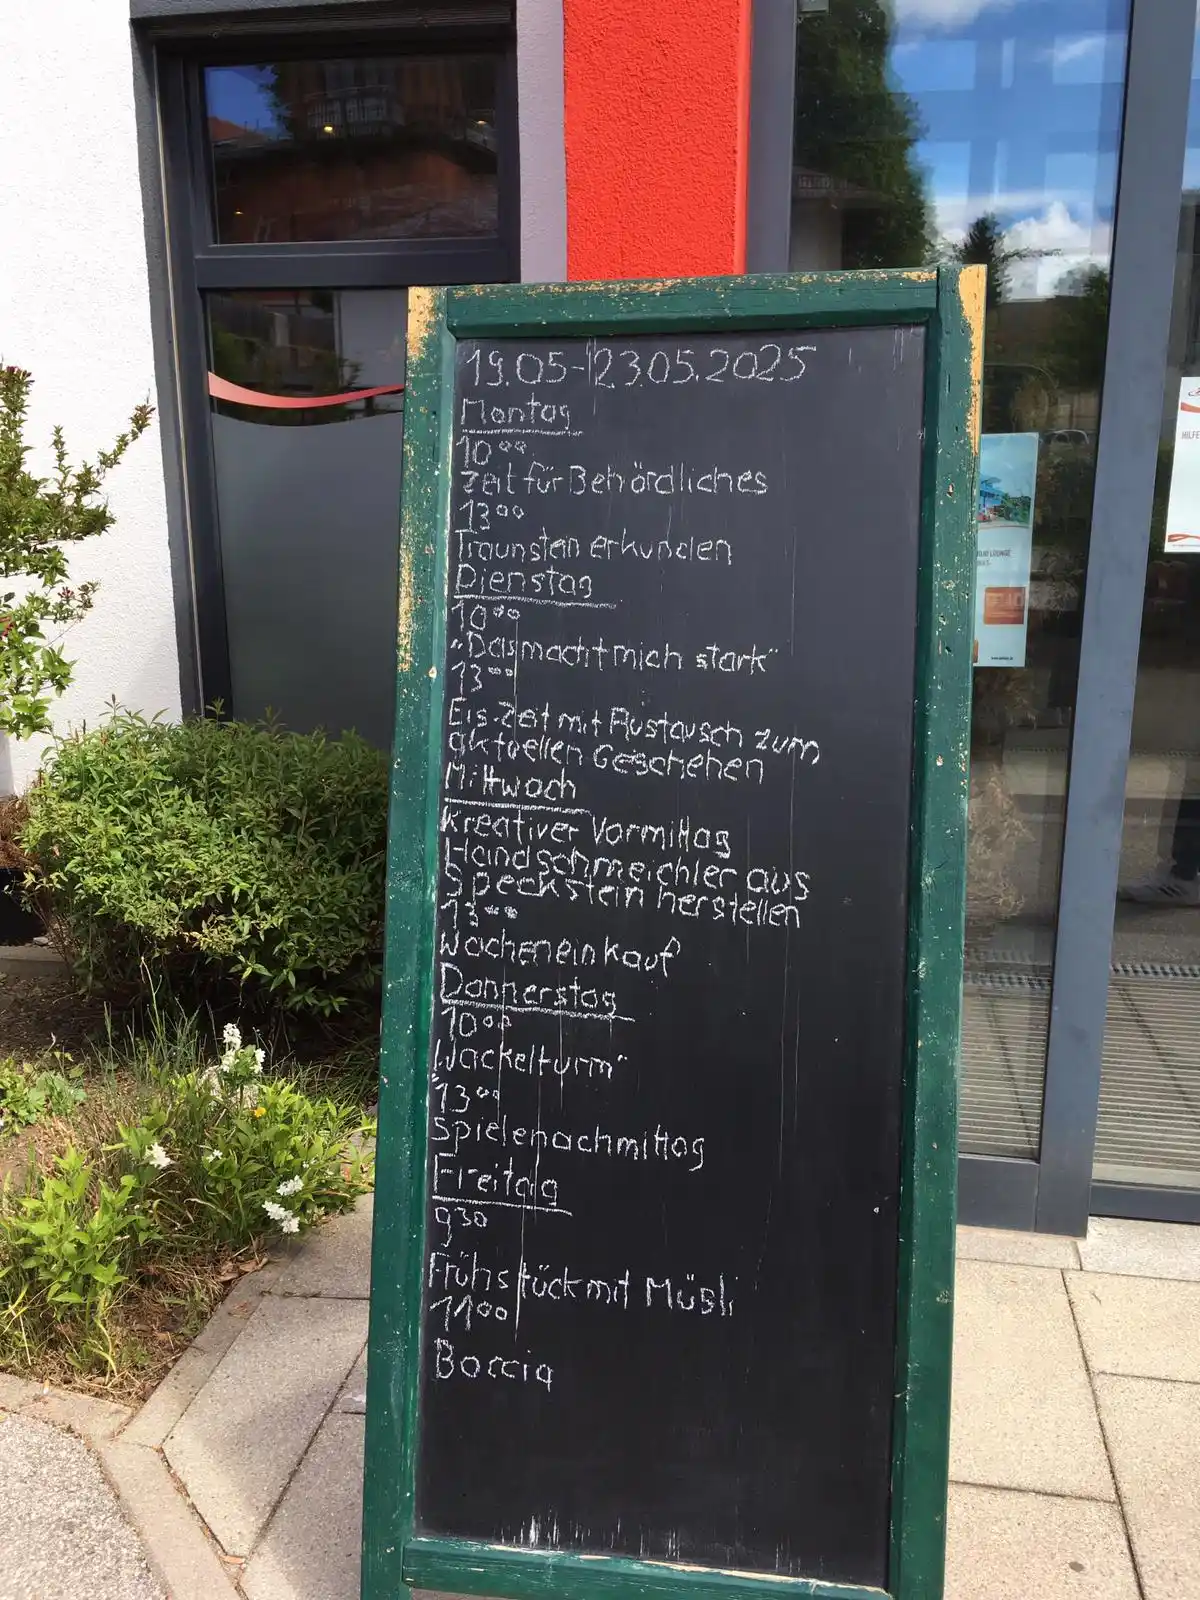 19.05-23.05.2025
Montag
10⁰⁰
Zeit für Behördliches
13⁰⁰
Traunstein erkunden
Dienstag
10⁰⁰
„Das macht mich stark"
13⁰⁰
Eis-Zeit mit Austausch zum
aktuellen Geschehen
Mittwoch
Kreativer Vormittag
Handschmeichler aus
Speckstein herstellen
13⁰⁰
Wocheneinkauf
Donnerstag
10⁰⁰
„Wackelturm"
13⁰⁰
Spielenachmittag
Freitag
9³⁰
Frühstück mit Müsli
11⁰⁰
Boccia
HILFE
LOUNGE